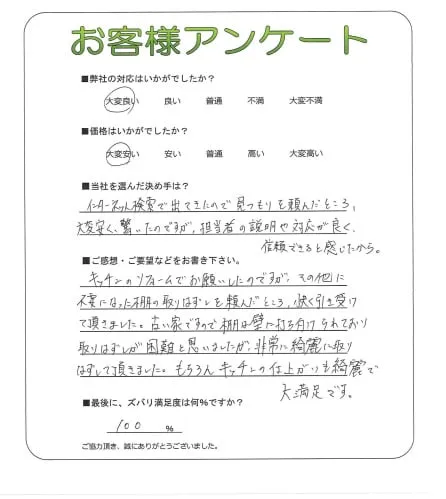 お客様アンケート
■弊社の対応はいかがでしたか？
大変良い 良い 普通 不満 大変不満
■価格はいかがでしたか？
大変安い 安い 普通 高い 大変高い
■当社を選んだ決め手は？
インターネット検索で出てきたので見つもりを頼んだところ、
大変安く、驚いたのですが、担当者の説明や対応が良く、
信頼できると感じたから。
■ご感想・ご要望などをお書き下さい。
キッチンのリフォームでお願いしたのですが、その他に
不要になった棚の取りはずしを頼んだところ、快く引き受け
て頂きました。古い家ですので棚は壁に打ち付けられており
取りはずしが困難と思いましたが、非常に綺麗に取り
はずして頂きました。もちろんキッチンの仕上がりも綺麗で
大満足です。
■最後に、ズバリ満足度は何％ですか？
100 %
ご協力頂き、誠にありがとうございました。